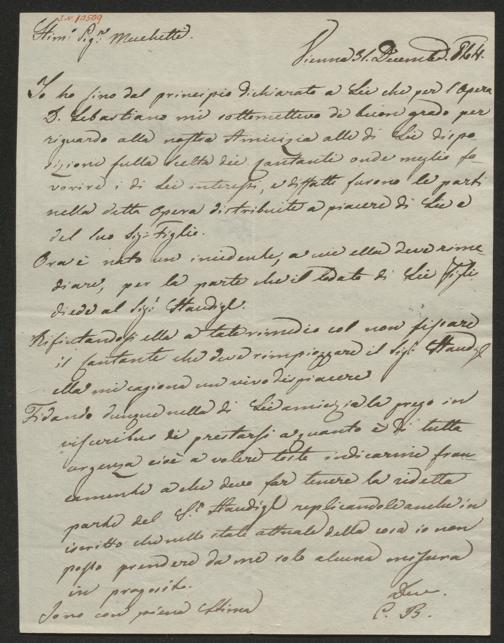 I.N. 10509
Stim: Sig.r Mechetti.
Vienna 31. Dicembre 844.
Io ho sino dal principio dichiarato a Lei che per l'Opera
D. Sebastiano mi sottometteva di buon grado per
riguardo alla nostra Amicizia alle di Lei dispo
sizione sulla scelta dei Cantante onde meglio fa
vorire i di Lei interessi, e diffatti furono le parti
nella detta Opera distribuite a piacere di Lei e
del suo Sig: Figlio.
Ora è nato un incidente, a cui ella deve rime
diare, per la parte che il lodato di Lei Figlio
diede al Sig: Staudigl.
Rifiutandosi ella a tale rimedio col non fissare
il Cantante che deve rimpiazzare il Sig: Staudigl
ella mi cagiona un vivo dispiacere
Fidando dunque nella di Lei amicizia la prego in
visceribus di prestarsi a quanto è di tutta
urgenza cioè a volere tosto indicarmi fran
camente a chi devo far tenere la ridetta
parte del S.r Staudigl replicandole anche in
iscritto che nello stato attuale della cosa io non
posso prendere da me solo alcuna misura
in proposito.
Sono con piena Stima
C. B.